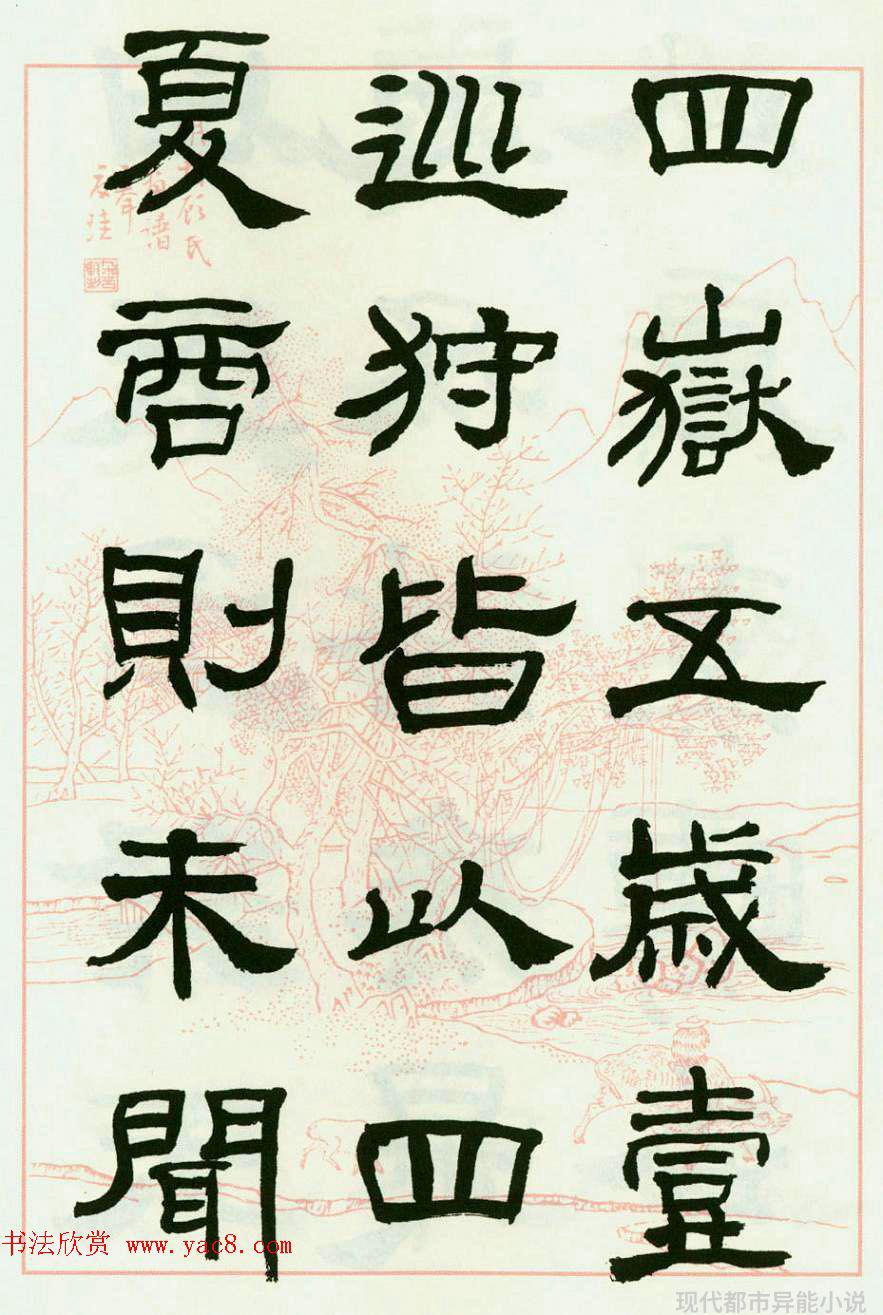 四嶽五歲壹
巡狩皆以四
夏商則未聞
顾氏
画谱
书法欣赏 www.yac8.com
现代都市异能小说